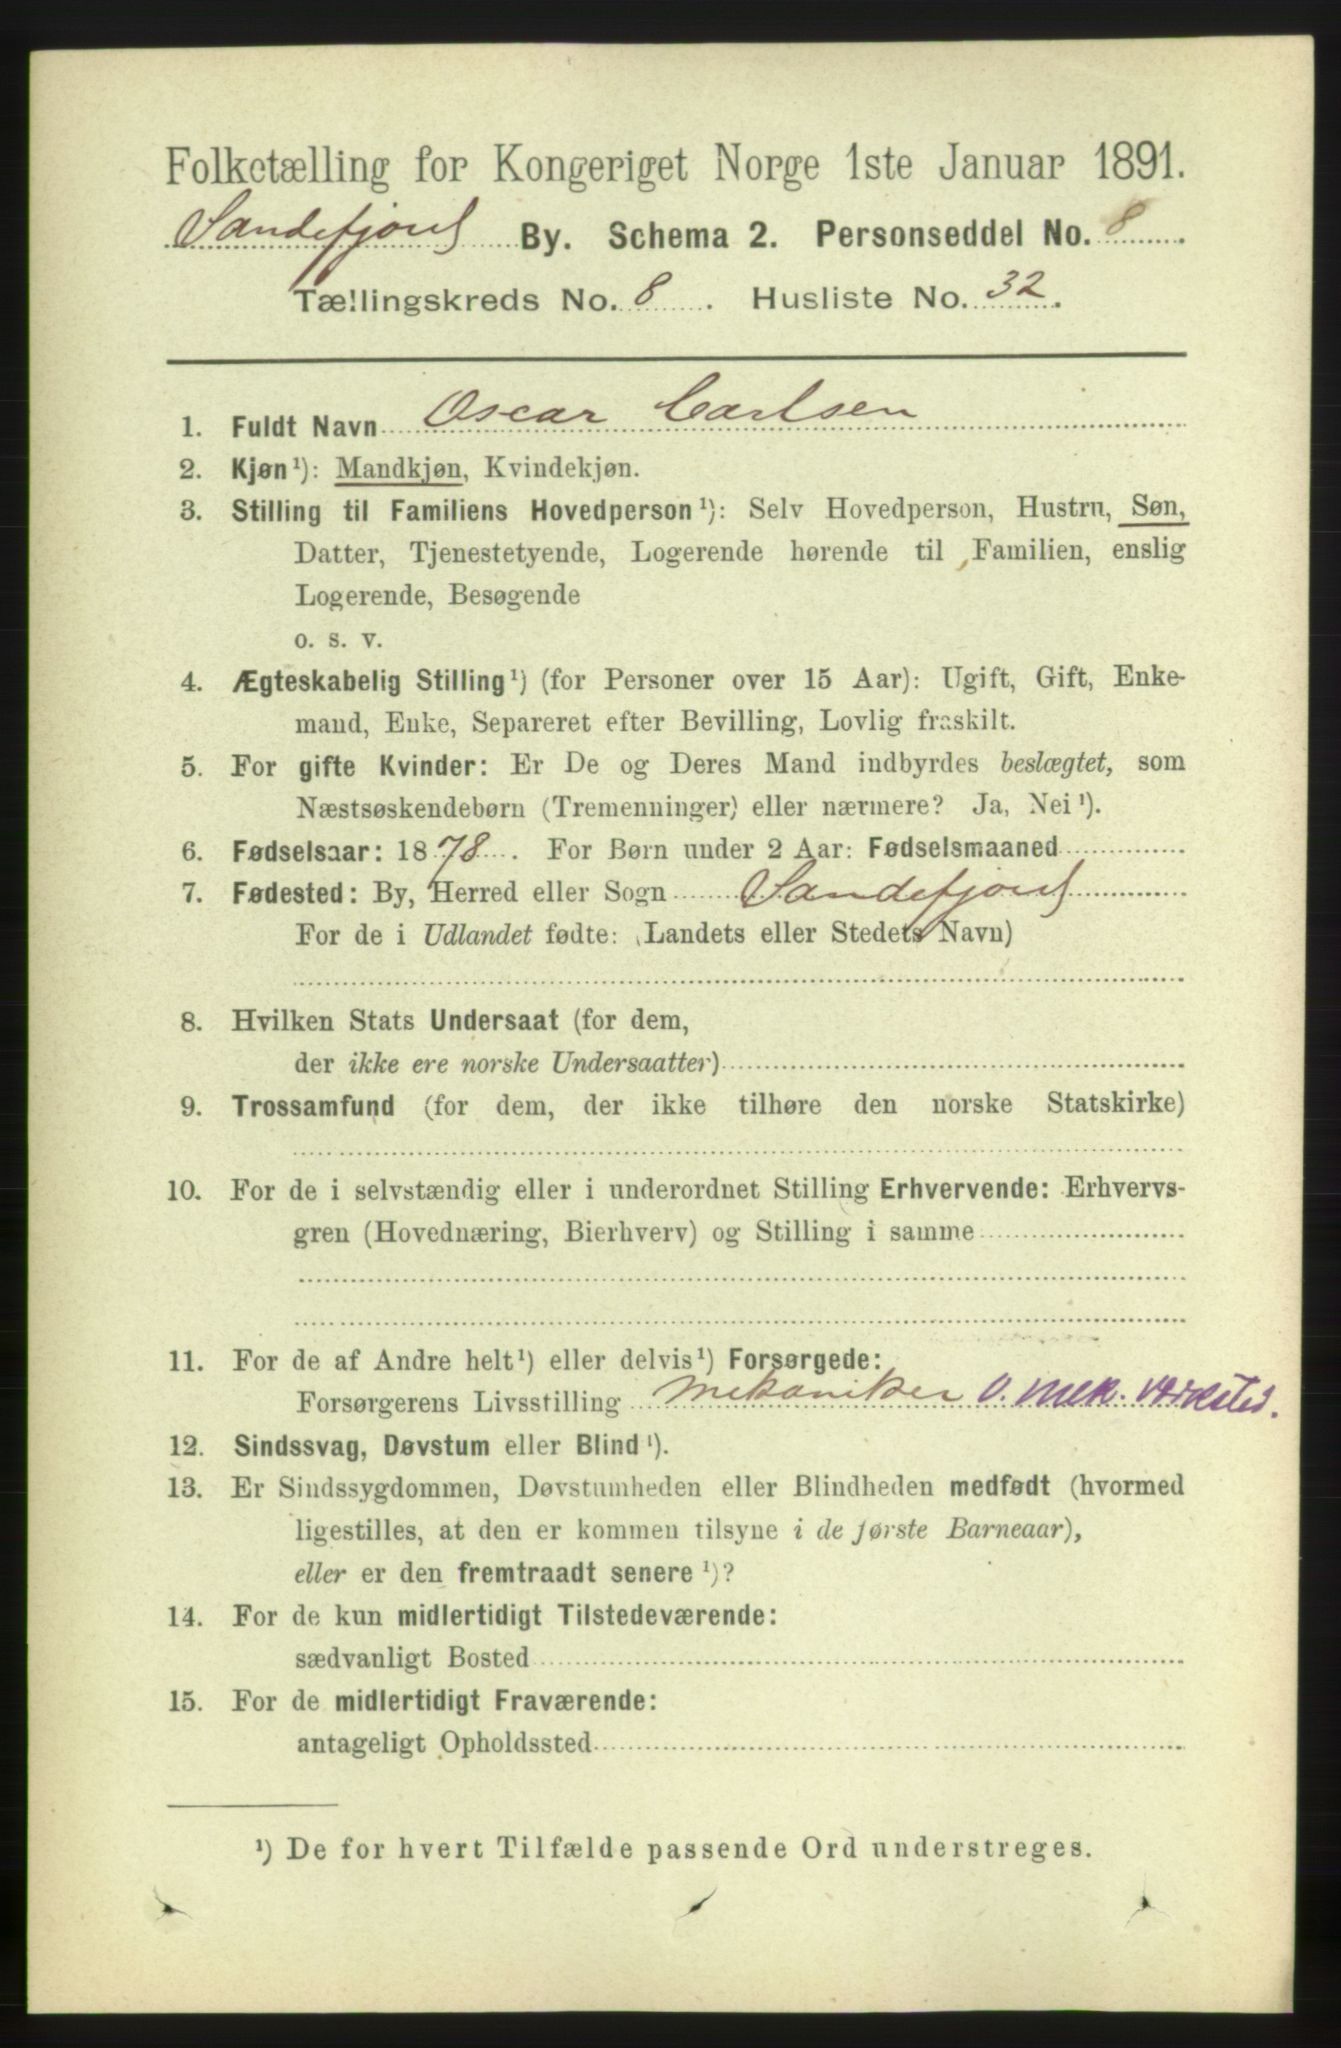 Folketælling for Kongeriget Norge 1ste Januar 1891.
Sandefjord By. Schema 2. Personseddel No. 8
Tællingskreds No. 8. Husliste No. 32.
1. Fuldt Navn Oscar Carlsen
2. Kjøn ¹): Mandkjøn, Kvindekjøn.
3. Stilling til Familiens Hovedperson ¹): Selv Hovedperson, Hustru, Søn,
Datter, Tjenestetyende, Logerende hørende til Familien, enslig
Logerende, Besøgende
o. s. v.
4. Ægteskabelig Stilling ¹) (for Personer over 15 Aar): Ugift, Gift, Enke-
mand, Enke, Separeret efter Bevilling, Lovlig fraskilt.
5. For gifte Kvinder: Er De og Deres Mand indbyrdes beslægtet, som
Næstsøskendebørn (Tremenninger) eller nærmere? Ja, Nei ¹).
6. Fødselsaar: 1878. For Børn under 2 Aar: Fødselsmaaned
7. Fødested: By, Herred eller Sogn Sandefjord
For de i Udlandet fødte: (Landets eller Stedets Navn)
8. Hvilken Stats Undersaat (for dem,
der ikke ere norske Undersaatter)
9. Trossamfund (for dem, der ikke tilhøre den norske Statskirke)
10. For de i selvstændig eller i underordnet Stilling Erhvervende: Erhvervs-
gren (Hovednæring, Bierhverv) og Stilling i samme
11. For de af Andre helt ¹) eller delvis ¹) Forsørgede:
Forsørgerens Livsstilling Mekaniker v. mek. værksted.
12. Sindssvag, Døvstum eller Blind ¹).
13. Er Sindssygdommen, Døvstumheden eller Blindheden medfødt (hvormed
ligestilles, at den er kommen tilsyne i de første Barneaar),
eller er den fremtraadt senere ¹)?
14. For de kun midlertidigt Tilstedeværende:
sædvanligt Bosted
15. For de midlertidigt Fraværende:
antageligt Opholdssted
¹) De for hvert Tilfælde passende Ord understreges.